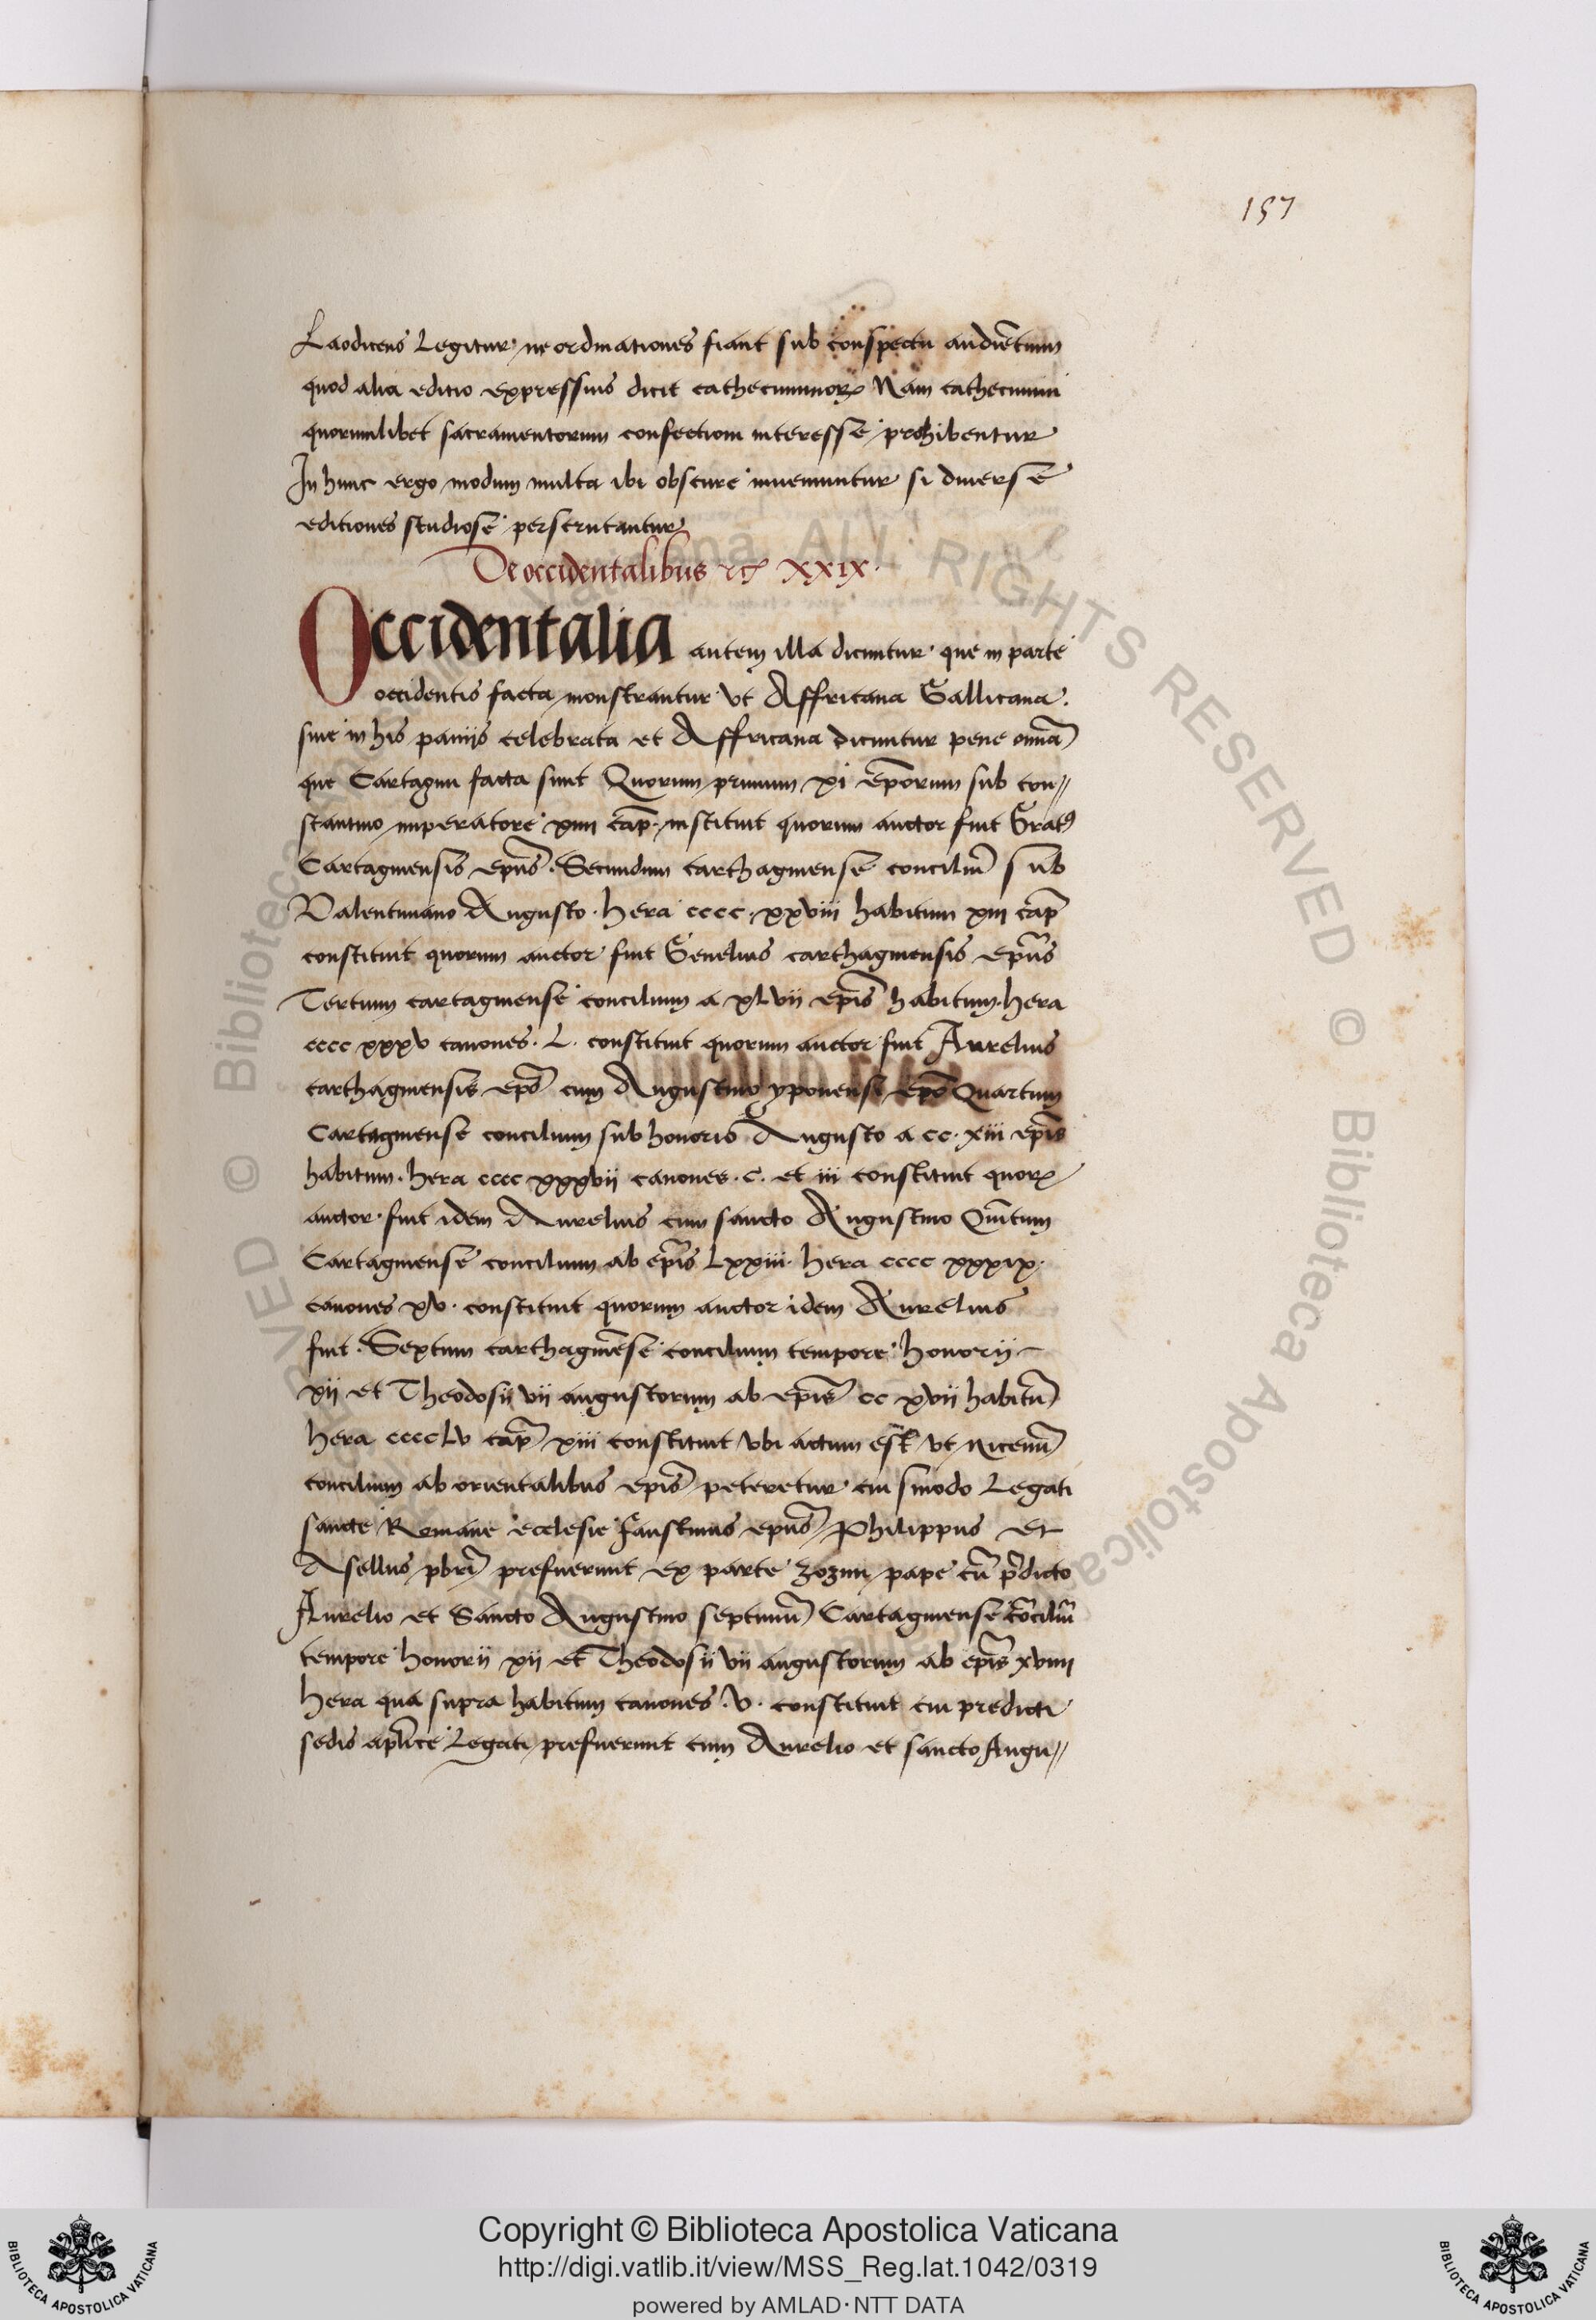 157
Laodicens Legitur ne ordinationes fiant sub conspectu audiẽtium
quod alia editio expressius dicit cathecuminoꝝ Nam cathecumini
quorumlibet sacramentorum confectioni interesse prohibentur
In hunc ergo modum multa ibi obscure inueniuntur si diuerse
editiones studiose perscrutantur
De occidentalibus XXIX.
Occidentalia autem illa dicuntur que in parte
occidentis facta monstrantur vt Affricana Gallicana.
siue in his celebrata et Affricana dicuntur pene omña
que Cartagini facta sunt Quorum primum xi ep̃orum sub con//
stantino imperatore xiiii cap̃. instituit quorum auctor fuit Gratꝰ
Cartaginensis ep̃us. Secundum carthaginense conciliũ sub
Valentiniano Augusto. hera cccc. xxviii habitum xiii cap̃
constituit quorum auctor fuit Genelius carthaginensis ep̃us
Tertium cartaginense concilium a xlvii ep̃is habitum. hera
cccc xxxv canones. L. constituit quorum auctor fuit Aurelius
carthaginensis ep̃s cum Augustino yponensi ep̃o Quartum
Cartaginense concilium sub honorio Augusto a cc. xiii ep̃is
habitum. hera cccc xxxvii canones. c. et iii constituit quoꝝ
auctor fuit idem Aurelius cum sancto Augustino Quĩtum
Cartaginense concilium ab ep̃is Lxxiii. hera cccc xxxix.
canones xv. constituit quorum auctor idem Aurelius
fuit. Sextum carthaginẽse concilium tempore honorii
xii et Theodosii vii augustorum ab ep̃is cc xvii habitũ
hera cccc Lv cap̃ xiii constituit vbi actum est vt nicenũ
concilium ab orientalibus ep̃is peteretur cui sinodo Legati
sancte Romane ecclesie Faustinus ep̃us Philippus et
Asellus pb̃ri prefuerunt ex parte zozimi pape cũ p̃dicto
Aurelio et Sancto Augustino septimũ Cartaginense cõciliũ
tempore honorii xii et Theodosii vii augustorum ab ep̃is xviiii
hera qua supra habitum canones. v. constituit cui predicti
sedis ap̃lice Legati prefuerunt cum Aurelio et sancto Augu//
© Biblioteca Apostolica Vaticana ALL RIGHTS RESERVED © Biblioteca Apostolica
Copyright © Biblioteca Apostolica Vaticana
http://digi.vatlib.it/view/MSS_Reg.lat.1042/0319
powered by AMLAD·NTT DATA
BIBLIOTECA APOSTOLICA VATICANA
BIBLIOTECA APOSTOLICA VATICANA